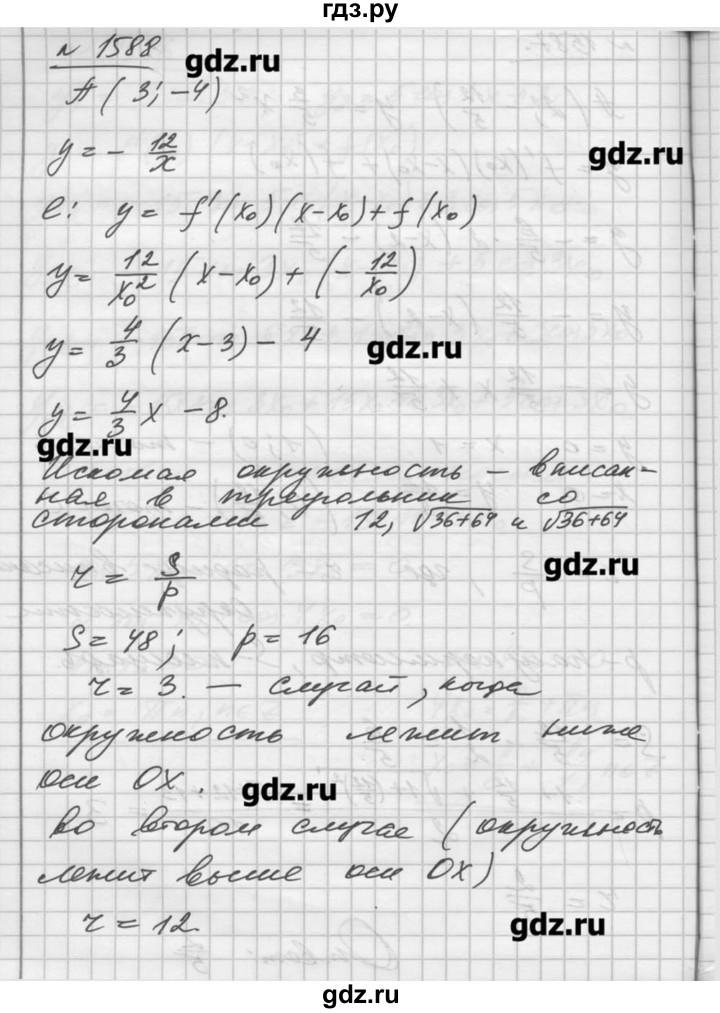 гдз.ру
№ 1588
gdz.ru
A(3; -4)
y = - 12/x
gdz.ru
l: y = f'(x₀)(x-x₀)+f(x₀)
y = 12/x₀² (x-x₀)+(-12/x₀)
y = 4/3 (x-3) - 4
gdz.ru
y = 4/3 x - 8.
gdz.ru
Искомая окружность - вписан-
ная в треугольник со
сторонами 12, √36+64 и √36+64
gdz.ru
r = S/p
S = 48; p = 16
r = 3. - случай, когда
окружность лежит ниже
оси OX.
gdz.ru
Во втором случае (окружность
лежит выше оси OX)
r = 12.
gdz.ru
gdz.ru